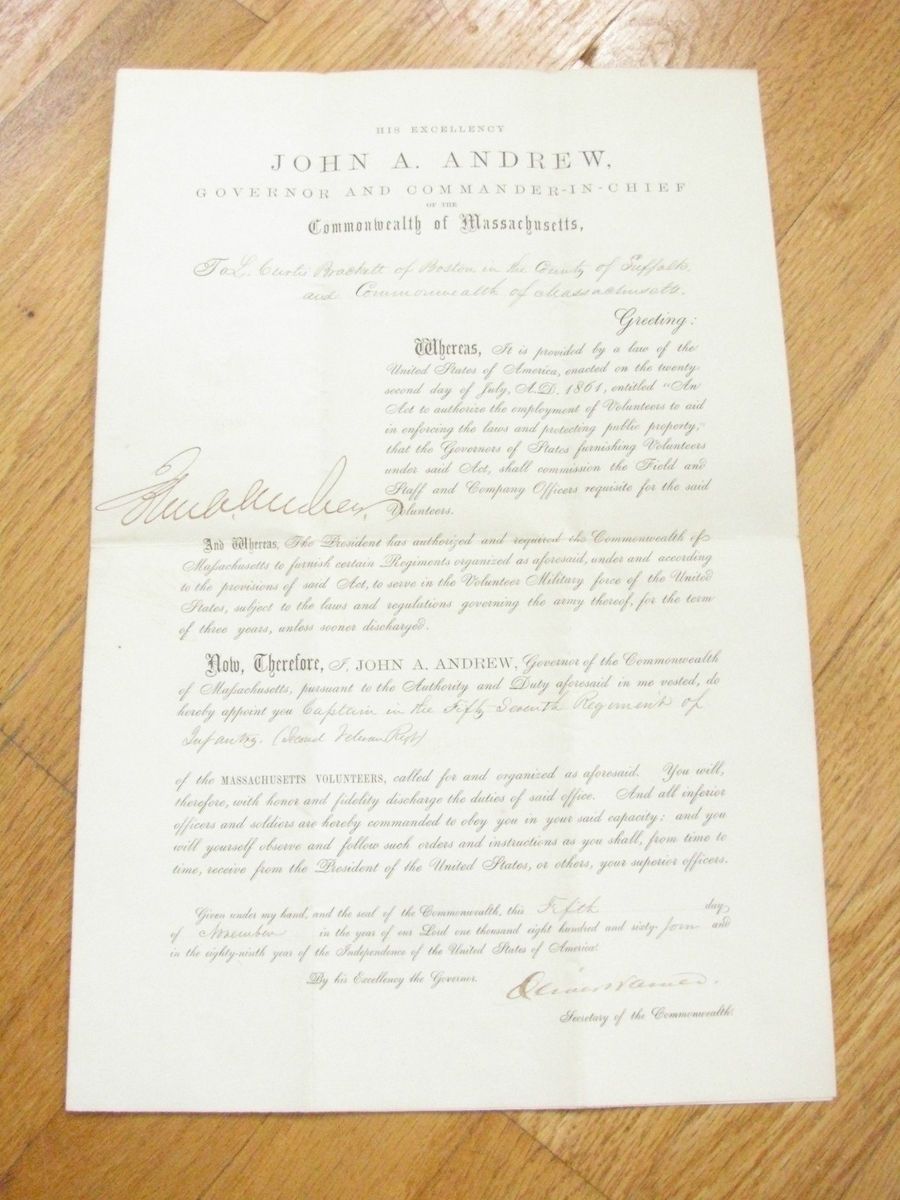 HIS EXCELLENCY
JOHN A. ANDREW,
GOVERNOR AND COMMANDER-IN-CHIEF
OF THE
Commonwealth of Massachusetts,
To L. Curtis Brackett of Boston in the County of Suffolk
and Commonwealth of Massachusetts.
Greeting:
Whereas, It is provided by a law of the
United States of America, enacted on the twenty-
second day of July, A.D. 1861, entitled "An
Act to authorize the employment of Volunteers to aid
in enforcing the laws and protecting public property,"
that the Governors of States furnishing Volunteers
under said Act, shall commission the Field and
Staff and Company Officers requisite for the said
Volunteers.
John A. Andrew.
And Whereas, The President has authorized and required the Commonwealth of
Massachusetts to furnish certain Regiments organized as aforesaid, under and according
to the provisions of said Act, to serve in the Volunteer Military force of the United
States, subject to the laws and regulations governing the army thereof, for the term
of three years, unless sooner discharged.
Now, Therefore, I, JOHN A. ANDREW, Governor of the Commonwealth
of Massachusetts, pursuant to the Authority and Duty aforesaid in me vested, do
hereby appoint you Captain in the Fifty Seventh Regiment of
Infantry. (Second Veteran Regt)
of the MASSACHUSETTS VOLUNTEERS, called for and organized as aforesaid. You will,
therefore, with honor and fidelity discharge the duties of said office. And all inferior
officers and soldiers are hereby commanded to obey you in your said capacity; and you
will yourself observe and follow such orders and instructions as you shall, from time to
time, receive from the President of the United States, or others, your superior officers.
Given under my hand, and the seal of the Commonwealth, this Fifth day
of November in the year of our Lord one thousand eight hundred and sixty-four and
in the eighty-ninth year of the Independence of the United States of America.
By his Excellency the Governor.
Oliver Warner.
Secretary of the Commonwealth.